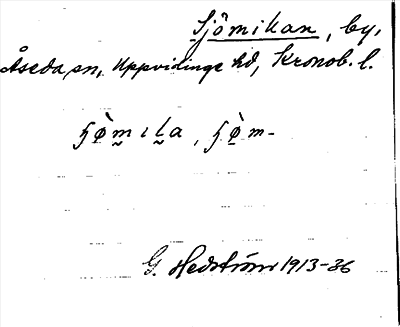 Sjömikan, by,
Åseda sn, Uppvidinge hd, Kronob. l.
G. Hedström 1913-36